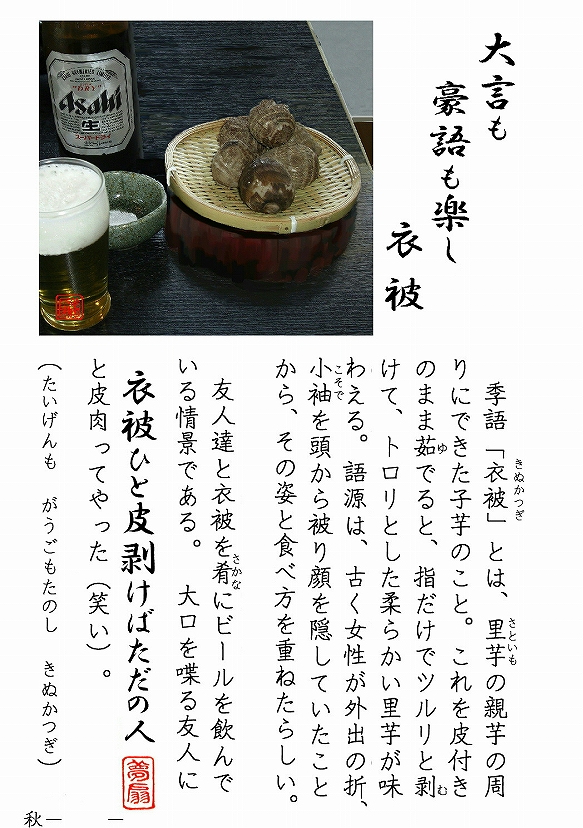 大言も
豪語も楽し
衣被
Asahi
"DRY"
生
季語「衣被」とは、里芋の親芋の周
きぬかつぎ
さといも
りにできた子芋のこと。これを皮付き
のまま茹でると、指だけでツルリと剥
ゆ
む
けて、トロリとした柔らかい里芋が味
わえる。語源は、古く女性が外出の折、
小袖を頭から被り顔を隠していたこと
こそで
から、その姿と食べ方を重ねたらしい。
友人達と衣被を肴にビールを飲んで
さかな
いる情景である。大口を喋る友人に
衣被ひと皮剥けばただの人
夢扇
と皮肉ってやった(笑い)。
(たいげんも がうごもたのし きぬかつぎ)
秋一 一